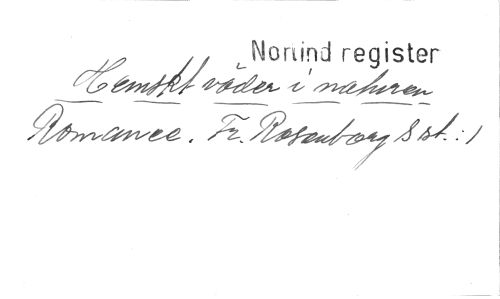 Norlind register
Hemskt väder i naturen
Romance. Fr. Rosenborg S st. : 1